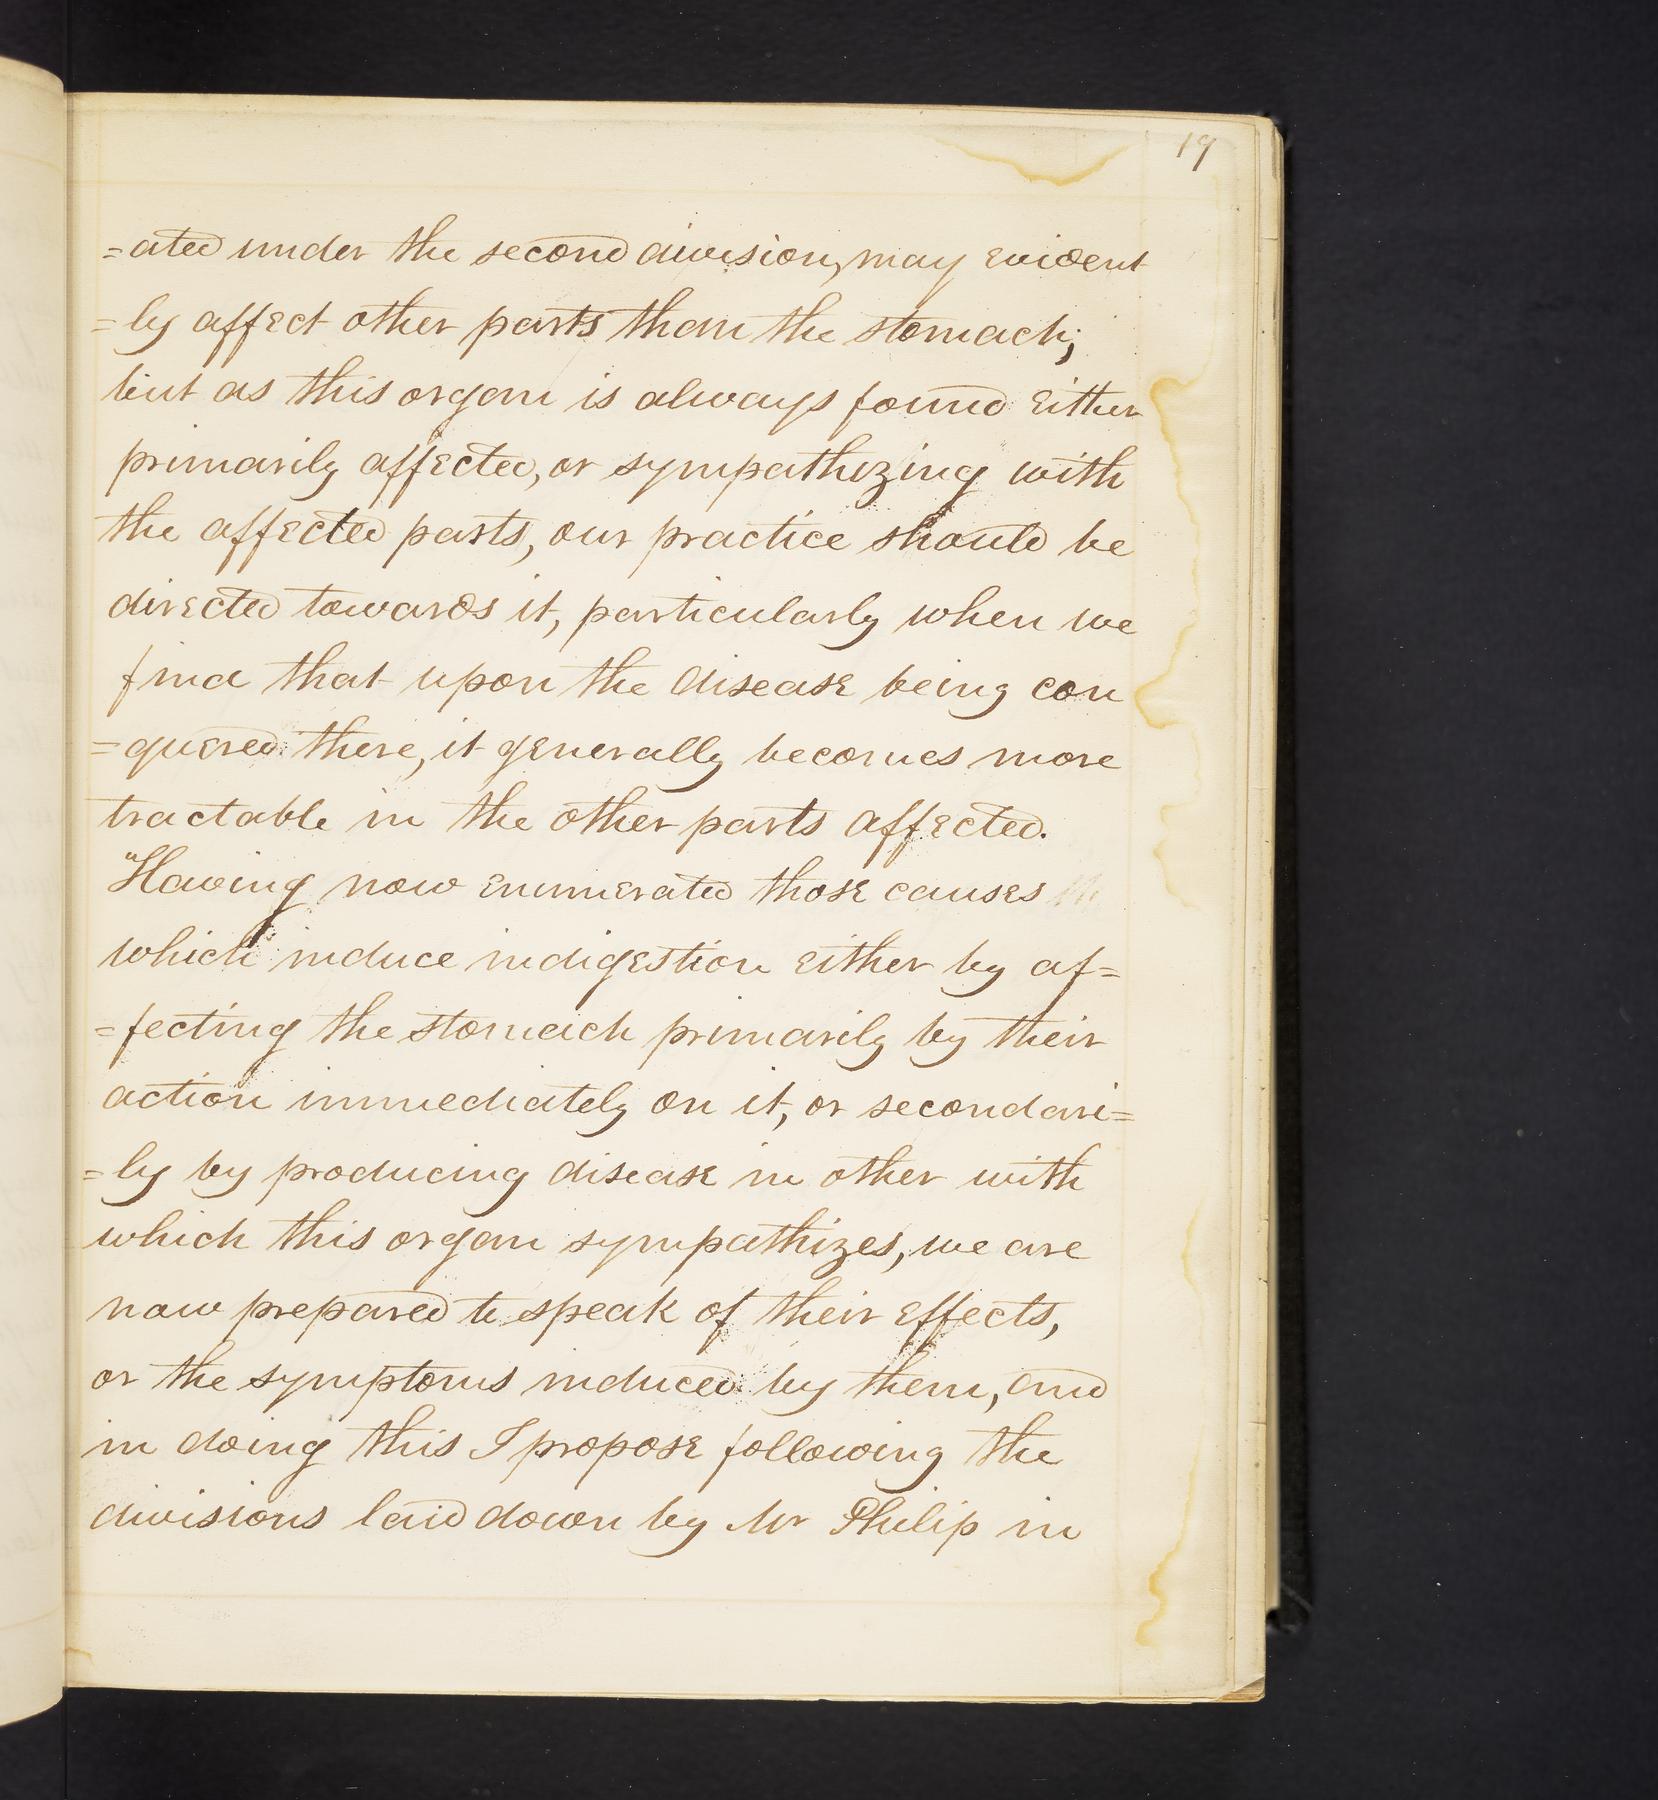 19
=ated under the second division, may evident
=ly affect other parts than the stomach;
but as this organ is always found either
primarily affected, or sympathizing with
the affected parts, our practice should be
directed towards it, particularly when we
find that upon the disease being con
=quered there, it generally becomes more
tractable in the other parts affected.
"Having now enumerated those causes
which induce indigestion either by af=
=fecting the stomach primarily by their
action immediately on it, or secondari=
=ly by producing disease in other with
which this organ sympathizes, we are
now prepared to speak of their effects,
or the symptoms induced by them, and
in doing this I propose following the
divisions laid down by Mr Philip in